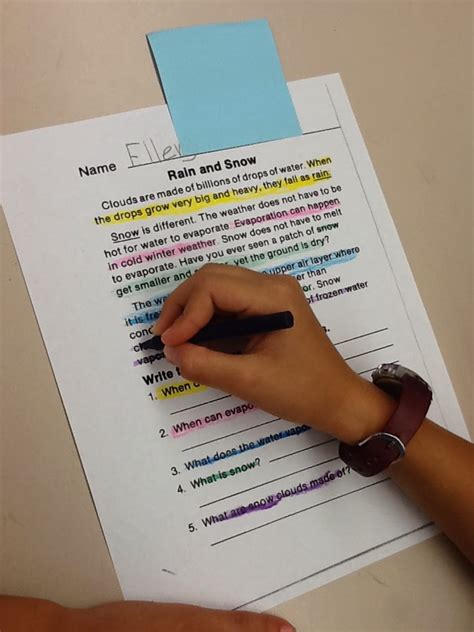 Name Ellery
Rain and Snow
Clouds are made of billions of drops of water. When
the drops grow very big and heavy, they fall as rain.
Snow is different. The weather does not have to be
hot for water to evaporate. Evaporation can happen
in cold winter weather. Snow does not have to melt
to evaporate. Have you ever seen a patch of snow
get smaller and yet the ground is dry?
The upper air layer where
it is than
Snow
of frozen water
vapor
Write
1. When
2. When can
3. What does the water
4. What is snow?
5. What are snow clouds made of?